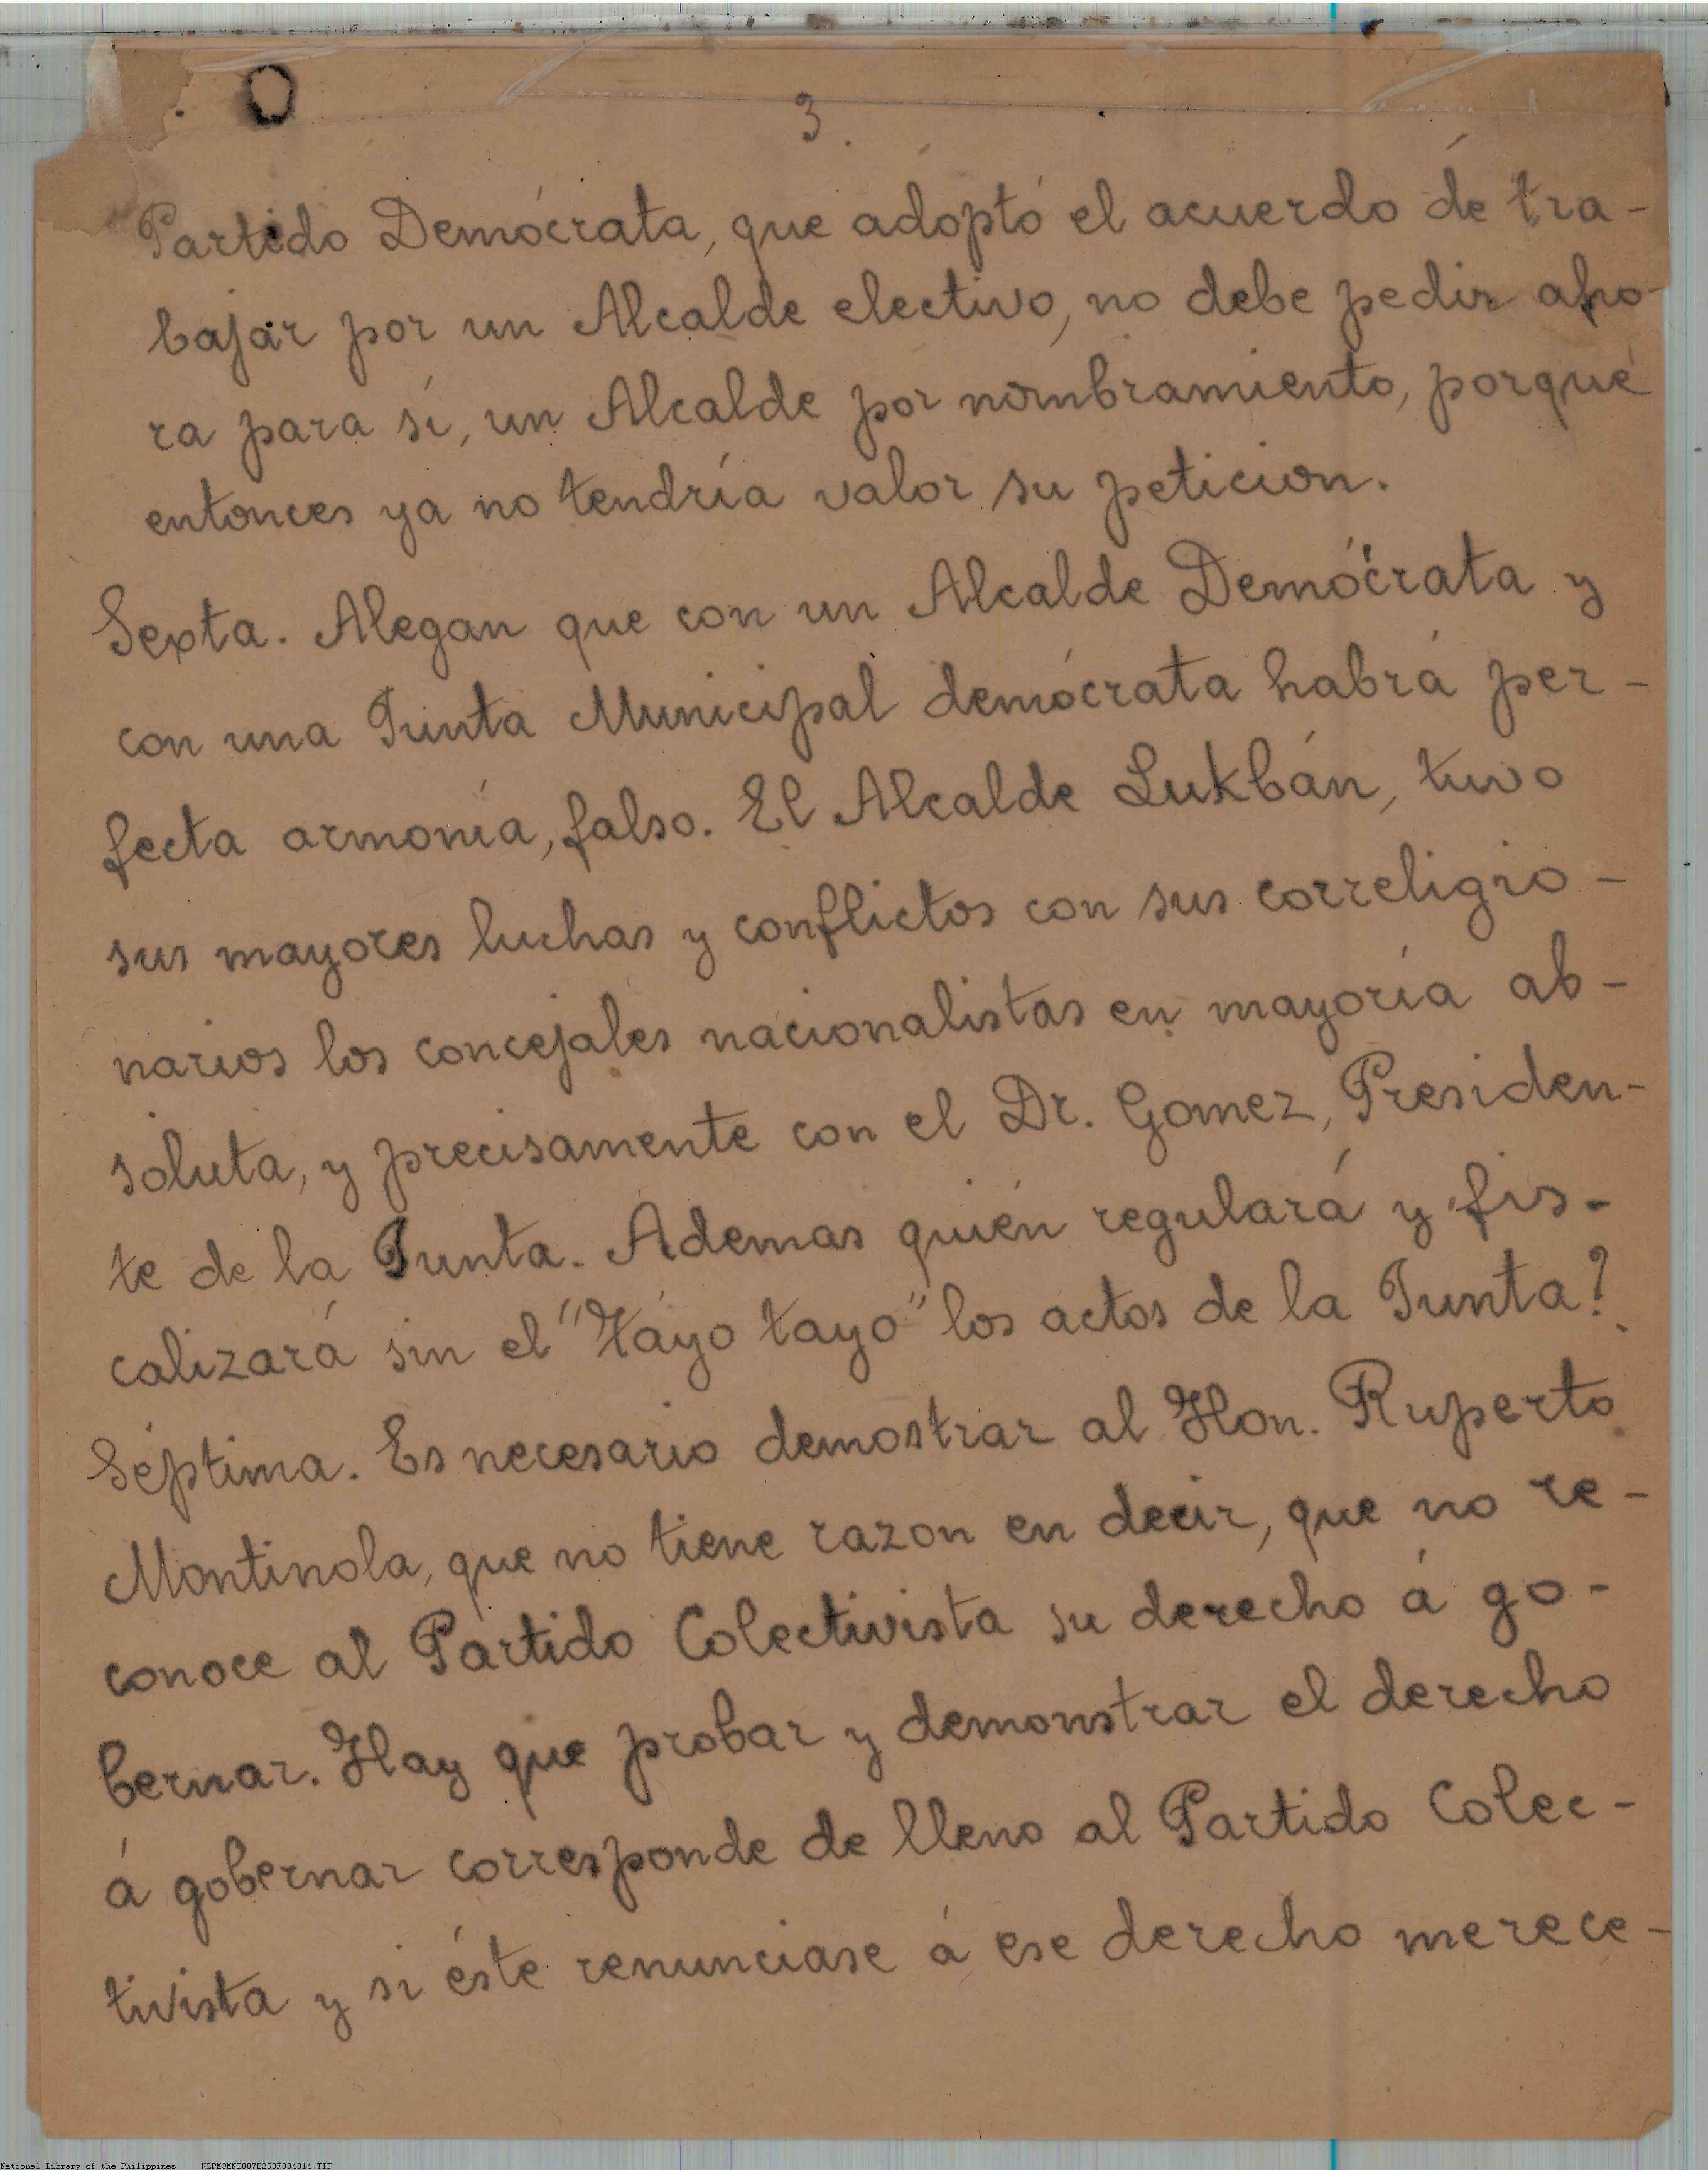 3.
Partido Demócrata, que adoptó el acuerdo de tra-
bajar por un Alcalde electivo, no debe pedir aho-
ra para sí, un Alcalde por nombramiento, porqué
entonces ya no tendría valor su peticion.
Sexta. Alegan que con un Alcalde Demócrata y
con una Junta Municipal demócrata habrá per-
fecta armonía, falso. El Alcalde Lukbán, tuvo
sus mayores luchas y conflictos con sus correligio-
narios los concejales nacionalistas en mayoría ab-
soluta, y precisamente con el Dr. Gomez, Presiden-
te de la Junta. Ademas quién regulará y fis-
calizará sin el "Táyo tayo" los actos de la Junta?
Séptima. Es necesario demostrar al Hon. Ruperto
Montinola, que no tiene razon en decir, que no re-
conoce al Partido Colectivista su derecho á go-
bernar. Hay que probar y demonstrar el derecho
á gobernar corresponde de lleno al Partido Colec-
tivista y si éste renunciase á ese derecho merece-
National Library of the Philippines NLPMQMNS007B258F004014.TIF